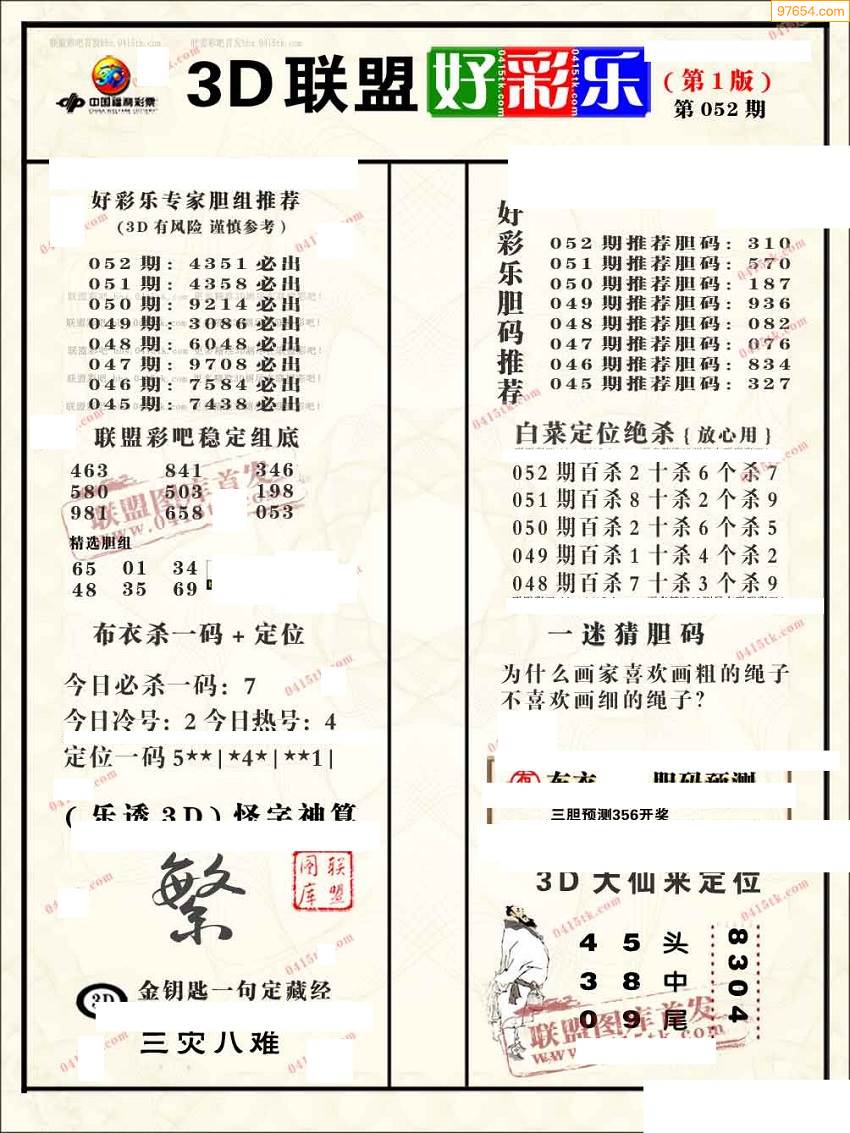 97654.com
联盟彩吧首发bbs.0415tk.com
中国福利彩票
CHINA WELFARE LOTTERY
3D联盟好彩乐
0415tk.com
0415tk.com
(第1版)
第052期
好彩乐专家胆组推荐
(3D有风险 谨慎参考)
052期: 4351必出
051期: 4358必出
050期: 9214必出
049期: 3086必出
048期: 6048必出
047期: 9708必出
046期: 7584必出
045期: 7438必出
联盟彩吧稳定组底
463 841 346
580 503 198
981 658 053
精选胆组
65 01 34
48 35 69
布衣杀一码+定位
今日必杀一码: 7
今日冷号: 2 今日热号: 4
定位一码5**|*4*|**1|
(乐透3D)怪字神算
繁
联盟图库
3D
金钥匙一句定藏经
三灾八难
好彩乐胆码推荐
052期推荐胆码: 310
051期推荐胆码: 570
050期推荐胆码: 187
049期推荐胆码: 936
048期推荐胆码: 082
047期推荐胆码: 076
046期推荐胆码: 834
045期推荐胆码: 327
白菜定位绝杀{放心用}
052期百杀2十杀6个杀7
051期百杀8十杀2个杀9
050期百杀2十杀6个杀5
049期百杀1十杀4个杀2
048期百杀7十杀3个杀9
一迷猜胆码
为什么画家喜欢画粗的绳子
不喜欢画细的绳子?
布衣 胆码预测
三胆预测356开奖
3D大仙来定位
4 5 头
3 8 中
0 9 尾
8304
联盟图库首发
www.0415tk.com
0415tk.com